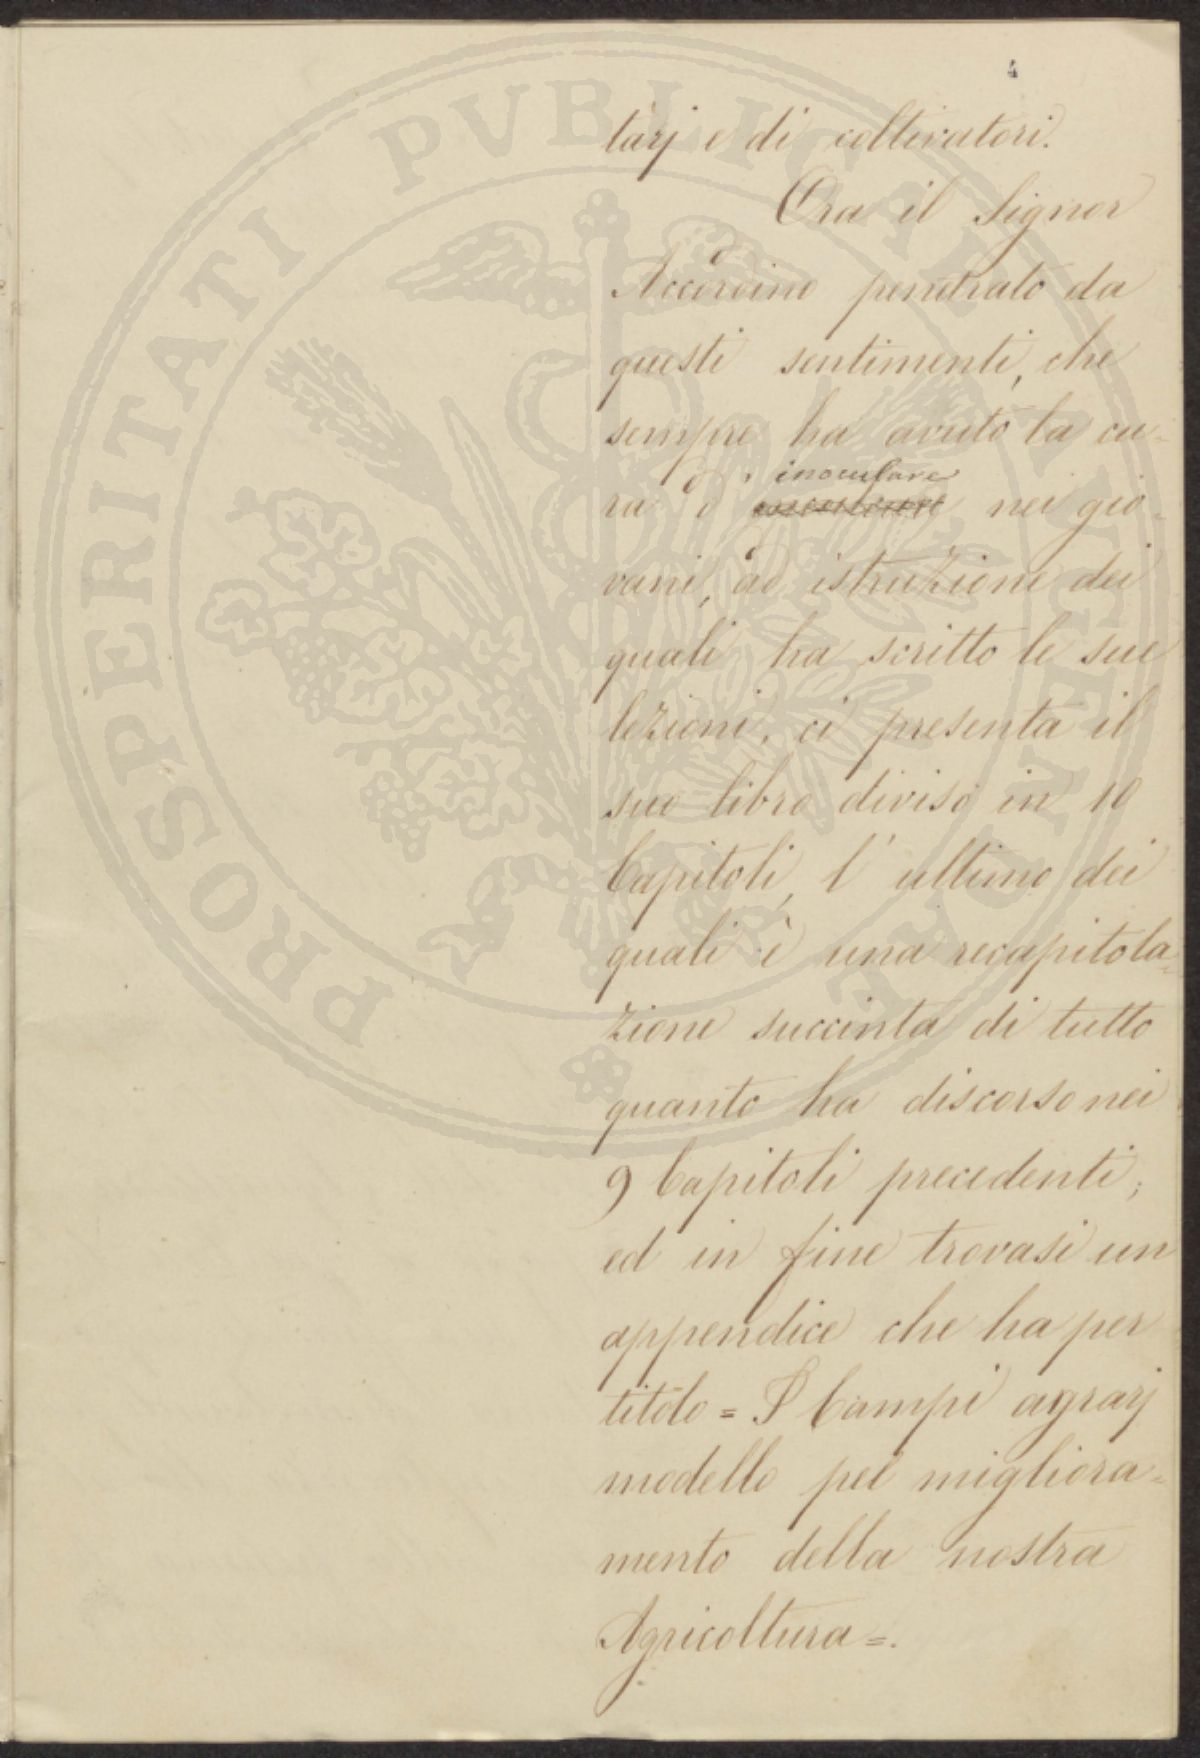 4
tarj e di coltivatori.
Ora il Signor
Accordino penetrato da
questi sentimenti, che
sempre ha avuto la cu-
inoculare
ra d' nei gio-
vani, ad istruzione dei
quali ha scritto le sue
lezioni, ci presenta il
suo libro diviso in 10
Capitoli, l'ultimo dei
quali è una recapitola=
zione succinta di tutto
quanto ha discorso nei
9 Capitoli precedenti;
ed in fine trovasi un
appendice che ha per
titolo = I Campi agrarj
modello pel migliora=
mento della nostra
Agricoltura =.
PROSPERITATI PVBLICAE AVGENDAE